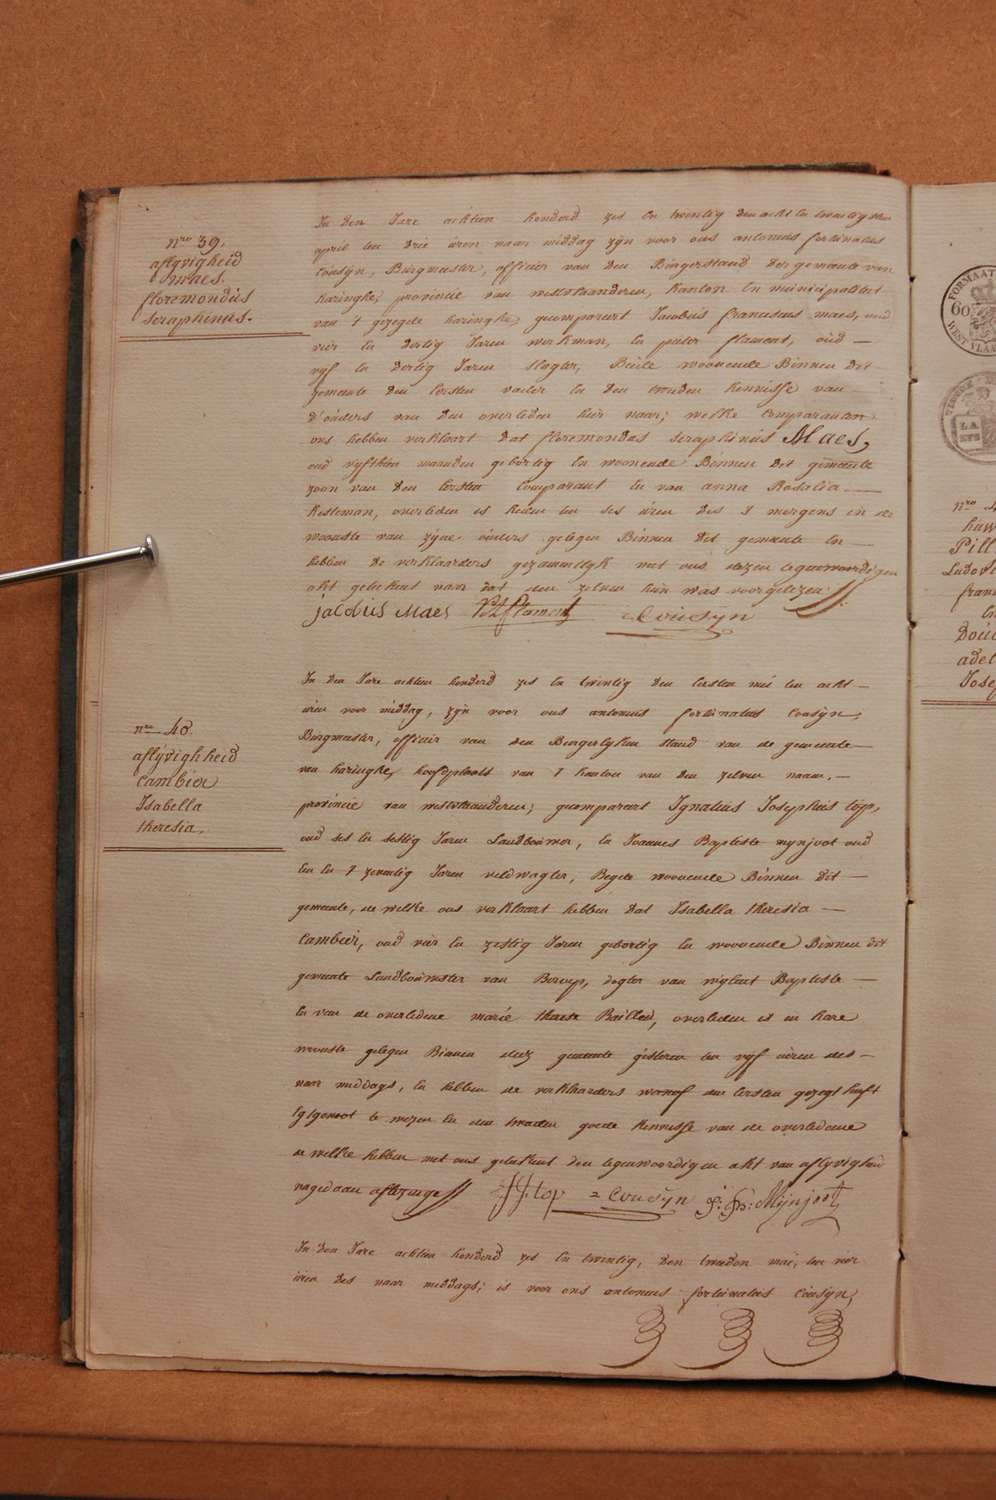 nro 39.
aflyvigheid
maes.
floremondus
seraphinus.
In den Jare achtien honderd zes en twintig den acht en twentigsten
april ten drie üren naer middag zyn voor ons antonius fortunatus
Cousÿn, Burgmeester, officier van den Burgerstand der gemeente van
haringhe, provincie van westvlaanderen, kanton en municipaliteit
van 't gezegde haringhe, gecompareert Jacobus franciscus maes, oud
vier en dertig Jaren werkman, en pieter flament, oud —
vyf en dertig Jaren slagter, Beide woonende Binnen dit
gemeente den eersten vader en den tweeden kennisse van
d'ouders van den overleden hier naer; welke Comparanten
ons hebben verklaart dat floremondus seraphinus Maes,
oud vyfthien maenden geboortig en woonende Binnen dit gemeente
zoon van den Eersten Comparant en van anna Rosalia —
Kesteman, overleden is heden ten ses üren des 's morgens in de
wooste van zijne oüders gelegen Binnen dit gemeente en —
hebben de verklaarders gezamentlyk met ons dezen tegenwoordigen
akt geteekent naer dat den zelven hun was voorgelezen.
jacobus Maes P. Flament = Cousÿn
nro 40.
aflÿvighheid
Cambier
Isabella
theresia.
In den Jare achtien honderd zes en twintig den eersten mei ten acht —
üren voor middag, zÿn voor ons antonius fortunatus Cousÿn,
Burgmeester, officier van den Burgerlyken stand van de gemeente —
van haringhe, hoofdplaats van 't kanton van den zelven naam. —
provincie van westvlaanderen; gecompareert Ignatius Josephus top,
oud ses en sestig Jaren Landboüwer, en Joannes Baptiste mynjoot oud
een en 't zeventig Jaren veldwagter, Beyde woonende Binnen dit —
gemeente, de welke ons verklaart hebben dat Isabella theresia —
Cambier, oud vier en zestig Jaren geboortig en woonende Binnen dit
gemeente Landboüwster van Beroep, dogter van Baptiste —
en van de overledene marie therese Bailleul, overleden is in hare
wooste gelegen Binnen deze gemeente gisteren ten vyf üren des —
naer middags, en hebben de verklaarders waarof den eersten gezegt heeft
Egtgenoot te wezen en den tweeden goede kennisse van de overledene
de welke hebben met ons geteekent den tegenwoordigen akt van aflyvigheid
nagedaan aflezinge J.J. top = Cousÿn J: Bte: Mÿnjoot
In den Jare achtien honderd zes en twintig, den tweeden mai, ten vier
üren des naer middags; is voor ons antonius fortunatus Cousÿn,
FORMAAT
60
WEST VLAA
nro 4
huw
Pill
Ludovi
fran
en
Doüc
adel
Josep